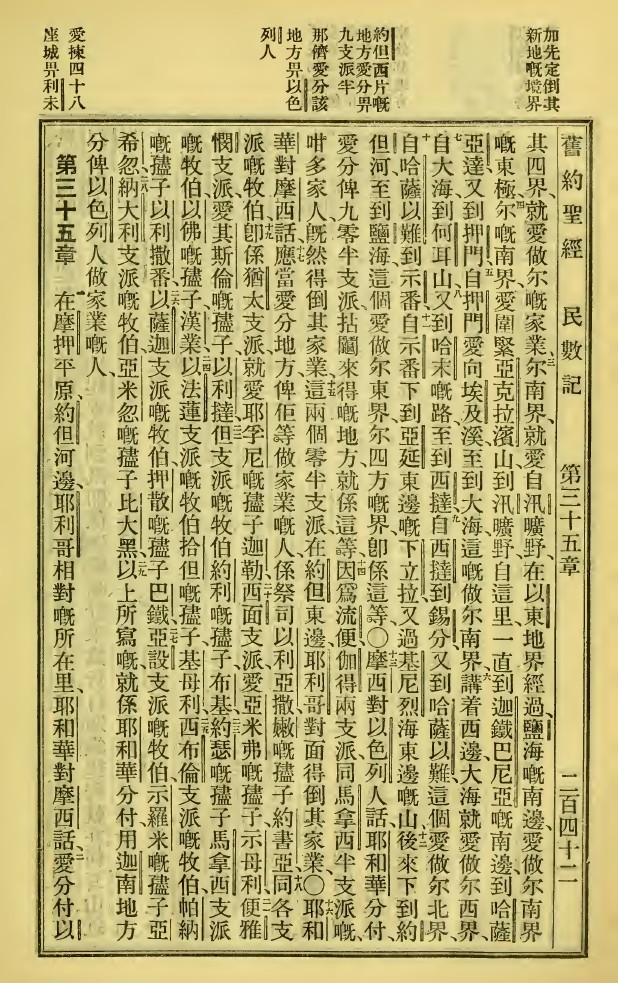 加先定倒其
新地嘅境界
約但西片嘅
地方愛分畀
九支派半
那儕愛分該
地方畀以色
列人
愛揀四十八
座城畀利未
舊約聖經 民數記 第三十五章 二百四十二
其四界、就愛做尔嘅家業、三尔南界、就愛自汛曠野、在以東地界經過、鹽海嘅南邊、愛做尔南界
嘅東極、四尔嘅南界、愛圍緊亞克拉濱山到汛曠野、自這里一直到迦鐵巴尼亞嘅南邊、到哈薩
亞達、又到押門、五自押門、愛向埃及溪、至到大海、這嘅做尔南界、六講着西邊、大海就愛做尔西界、
七自大海到何耳山、八又到哈末嘅路、至到西撻、九自西撻到錫分、又到哈薩以難、這個愛做尔北界、
十自哈薩以難到示番、十一自示番下到亞延東邊嘅下立拉、又過基尼烈海東邊嘅山、十二後來下到約
但河、至到鹽海、這個愛做尔東界、尔四方嘅界、卽係這等、〇十三摩西對以色列人話、耶和華分付、
愛分俾九零半支派拈鬮來得嘅地方、就係這等、十四因爲流便伽得兩支派、同馬拿西半支派嘅、
咁多家人、旣然得倒其家業、十五這兩個零半支派、在約但東邊、耶利哥對面得倒其家業、〇十六耶和
華對摩西話、十七應當愛分地方俾佢等做家業嘅人、係祭司以利亞撒、嫩嘅孻子約書亞、十八同各支
派嘅牧伯、十九卽係猶太支派、就愛耶孚尼嘅孻子迦勒、二十西面支派、愛亞米弗嘅孻子示母利、二一便雅
憫支派、愛其斯倫嘅孻子以利撻、二二但支派嘅牧伯約利嘅孻子布基、二三約瑟嘅孻子、馬拿西支派
嘅牧伯、以佛嘅孻子漢業、二四以法蓮支派嘅牧伯、拾但嘅孻子基母利、二五西布倫支派嘅牧伯、帕納
嘅孻子以利撒番、二六以薩迦支派嘅牧伯、押散嘅孻子巴鐵、二七亞設支派嘅牧伯、示羅米嘅孻子亞
希忽、二八納大利支派嘅牧伯、亞米忽嘅孻子比大黑、二九以上所寫嘅、就係耶和華分付、用迦南地方
分俾以色列人做家業嘅人、
第三十五章 一在摩押平原、約但河邊、耶利哥相對嘅所在里、耶和華對摩西話、二愛分付以